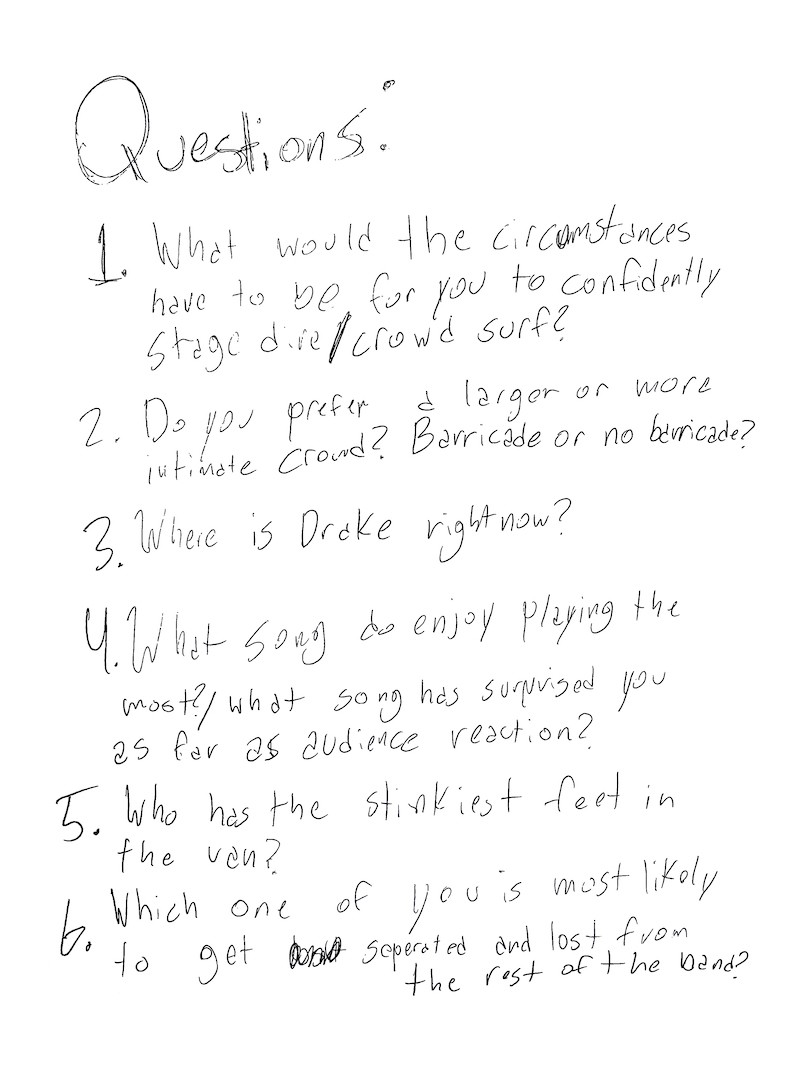 Questions:
1. What would the circumstances
have to be for you to confidently
stage dive/crowd surf?
2. Do you prefer a larger or more
intimate crowd? Barricade or no barricade?
3. Where is Drake right now?
4. What song do enjoy playing the
most?/what song has surprised you
as far as audience reaction?
5. Who has the stinkiest feet in
the van?
6. Which one of you is most likely
to get seperated and lost from
the rest of the band?